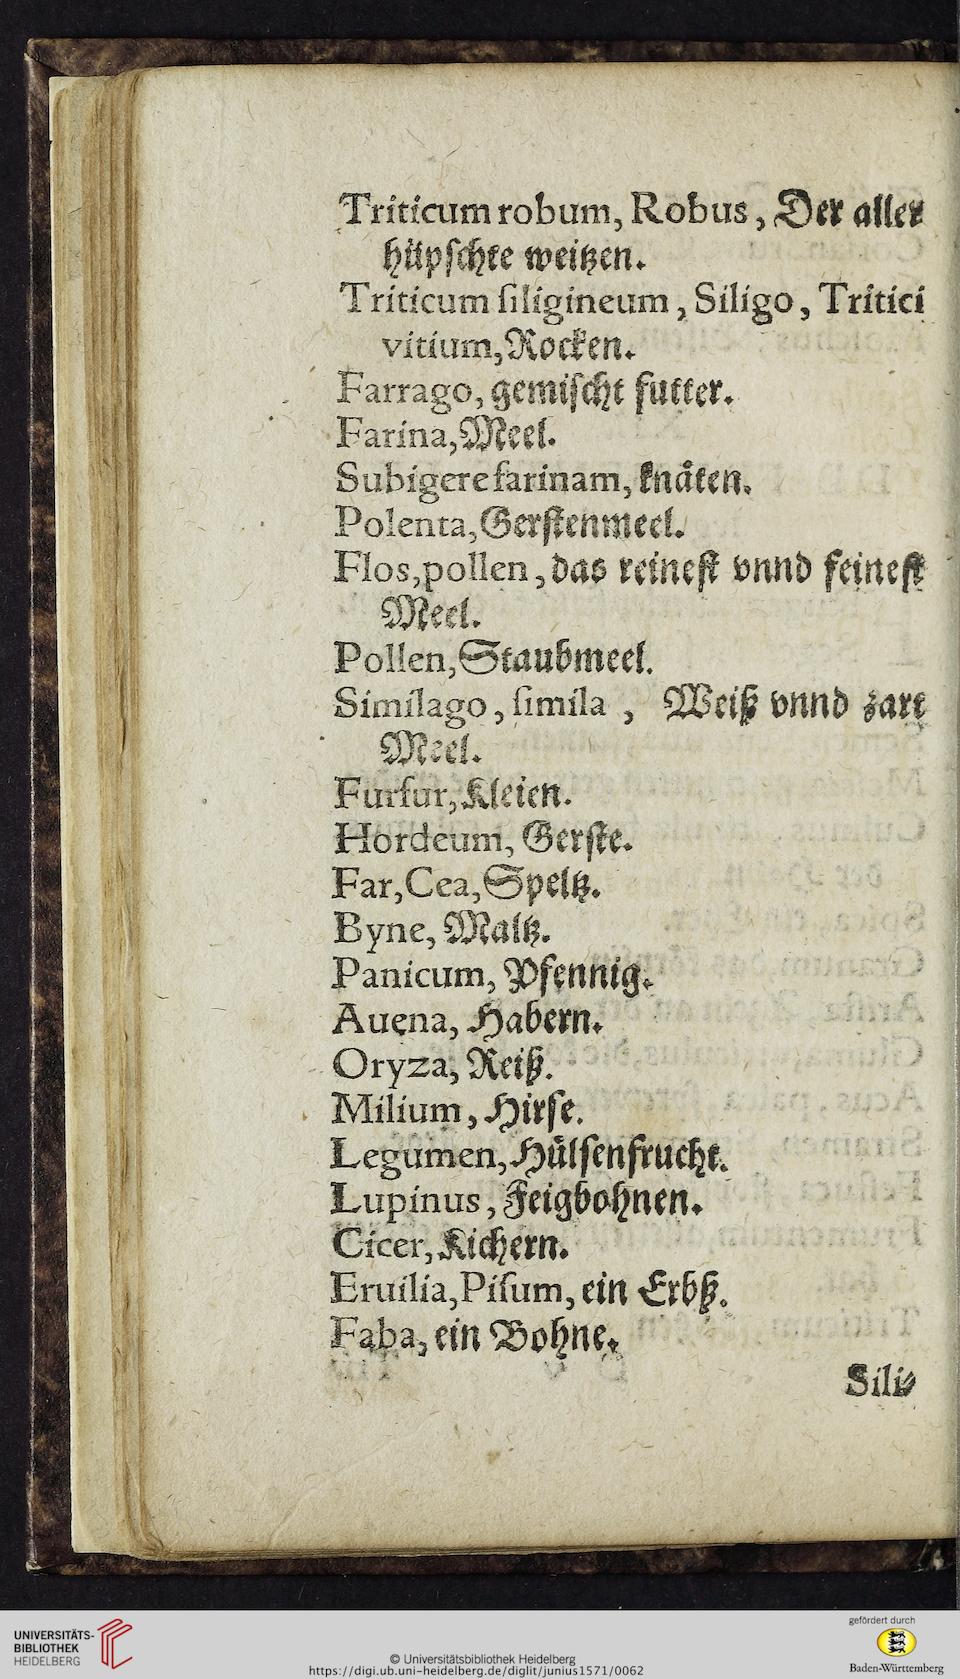 Triticum robum, Robus, Der aller
hüpſchte weitzen.
Triticum ſiligineum, Siligo, Tritici
vitium, Rocken.
Farrago, gemiſcht futter.
Farina, Meel.
Subigere farinam, knåten.
Polenta, Gerſtenmeel.
Flos, pollen, das reineſt vnnd feineſt
Meel.
Pollen, Staubmeel.
Similago, ſimila, Weiß vnnd zart
Meel.
Furfur, Kleien.
Hordeum, Gerſte.
Far, Cea, Speltz.
Byne, Maltz.
Panicum, Pfennig.
Auena, Habern.
Oryza, Reiß.
Milium, Hirſe.
Legumen, Hülſenfrucht.
Lupinus, Feigbohnen.
Cicer, Kichern.
Eruilia, Piſum, ein Erbß.
Faba, ein Bohne.
Sili⸗
UNIVERSITÄTS-
BIBLIOTHEK
HEIDELBERG
© Universitätsbibliothek Heidelberg
https://digi.ub.uni-heidelberg.de/diglit/junius1571/0062
gefördert durch
Baden-Württemberg